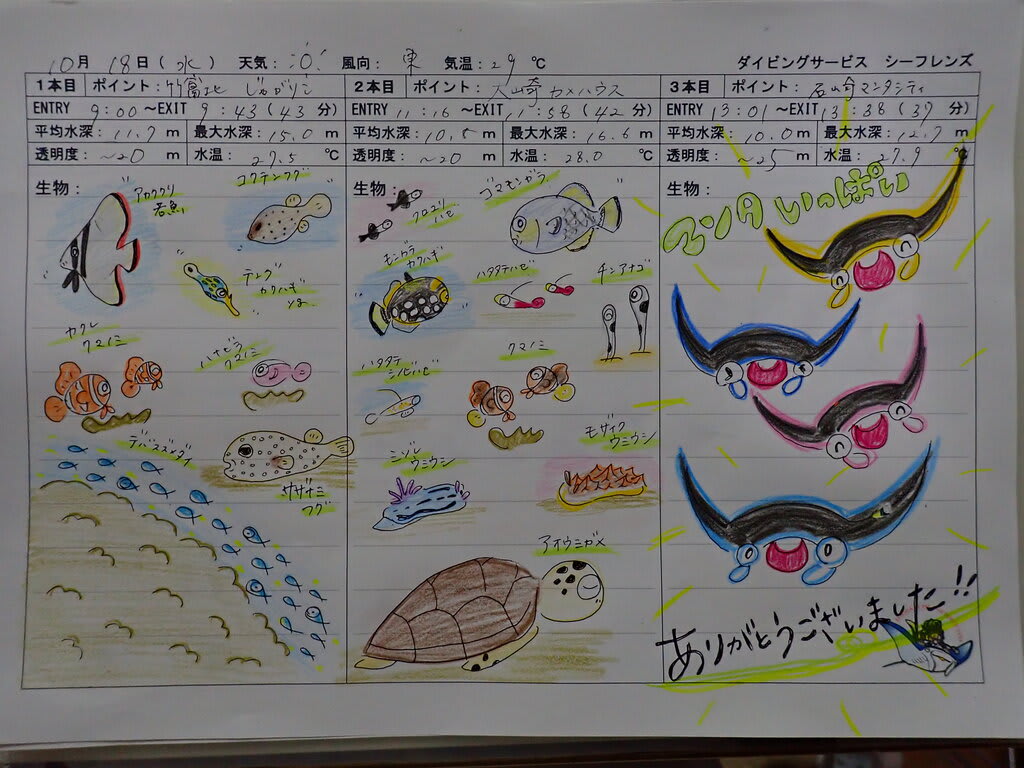 10月 18日(水) 天気: 風向:東 気温:29℃ ダイビングサービス シーフレンズ
1本目 ポイント:竹富北 じゃがりこ
ENTRY 9:00 ~EXIT 9:43(43分)
平均水深:11.7 m 最大水深:15.0 m
透明度:~20 m 水温:27.5 ℃
生物:
アカククリ
若魚
コクテンフグ
テングカワハギ
カクレ
クマノミ
ハナビラ
クマノミ
デバスズメダイ
サザナミ
フグ
2本目 ポイント:大崎カメハウス
ENTRY 11:16 ~EXIT 11:58(42分)
平均水深:10.5 m 最大水深:16.6 m
透明度:~20 m 水温:28.0 ℃
生物:
クロユリハゼ
ゴマモンガラ
モンガラ
カワハギ
ハタタテハゼ
チンアナゴ
ハタタテ
シノビハゼ
クマノミ
ミゾレ
ウミウシ
モザイク
ウミウシ
アオウミガメ
3本目 ポイント:石崎マンタシティ
ENTRY 13:01 ~EXIT 13:38(37分)
平均水深:10.0 m 最大水深:12.7 m
透明度:~25 m 水温:27.9 ℃
生物:
マンタいっぱい
ありがとうございました!!